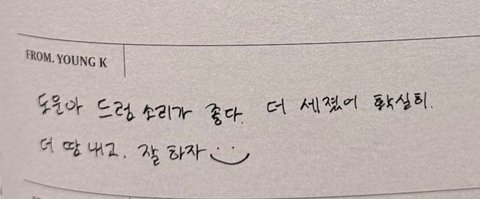 FROM. YOUNG K
도운아 드럼 소리가 좋다. 더 세졌어 확실히.
더 땀 내고. 잘 하자